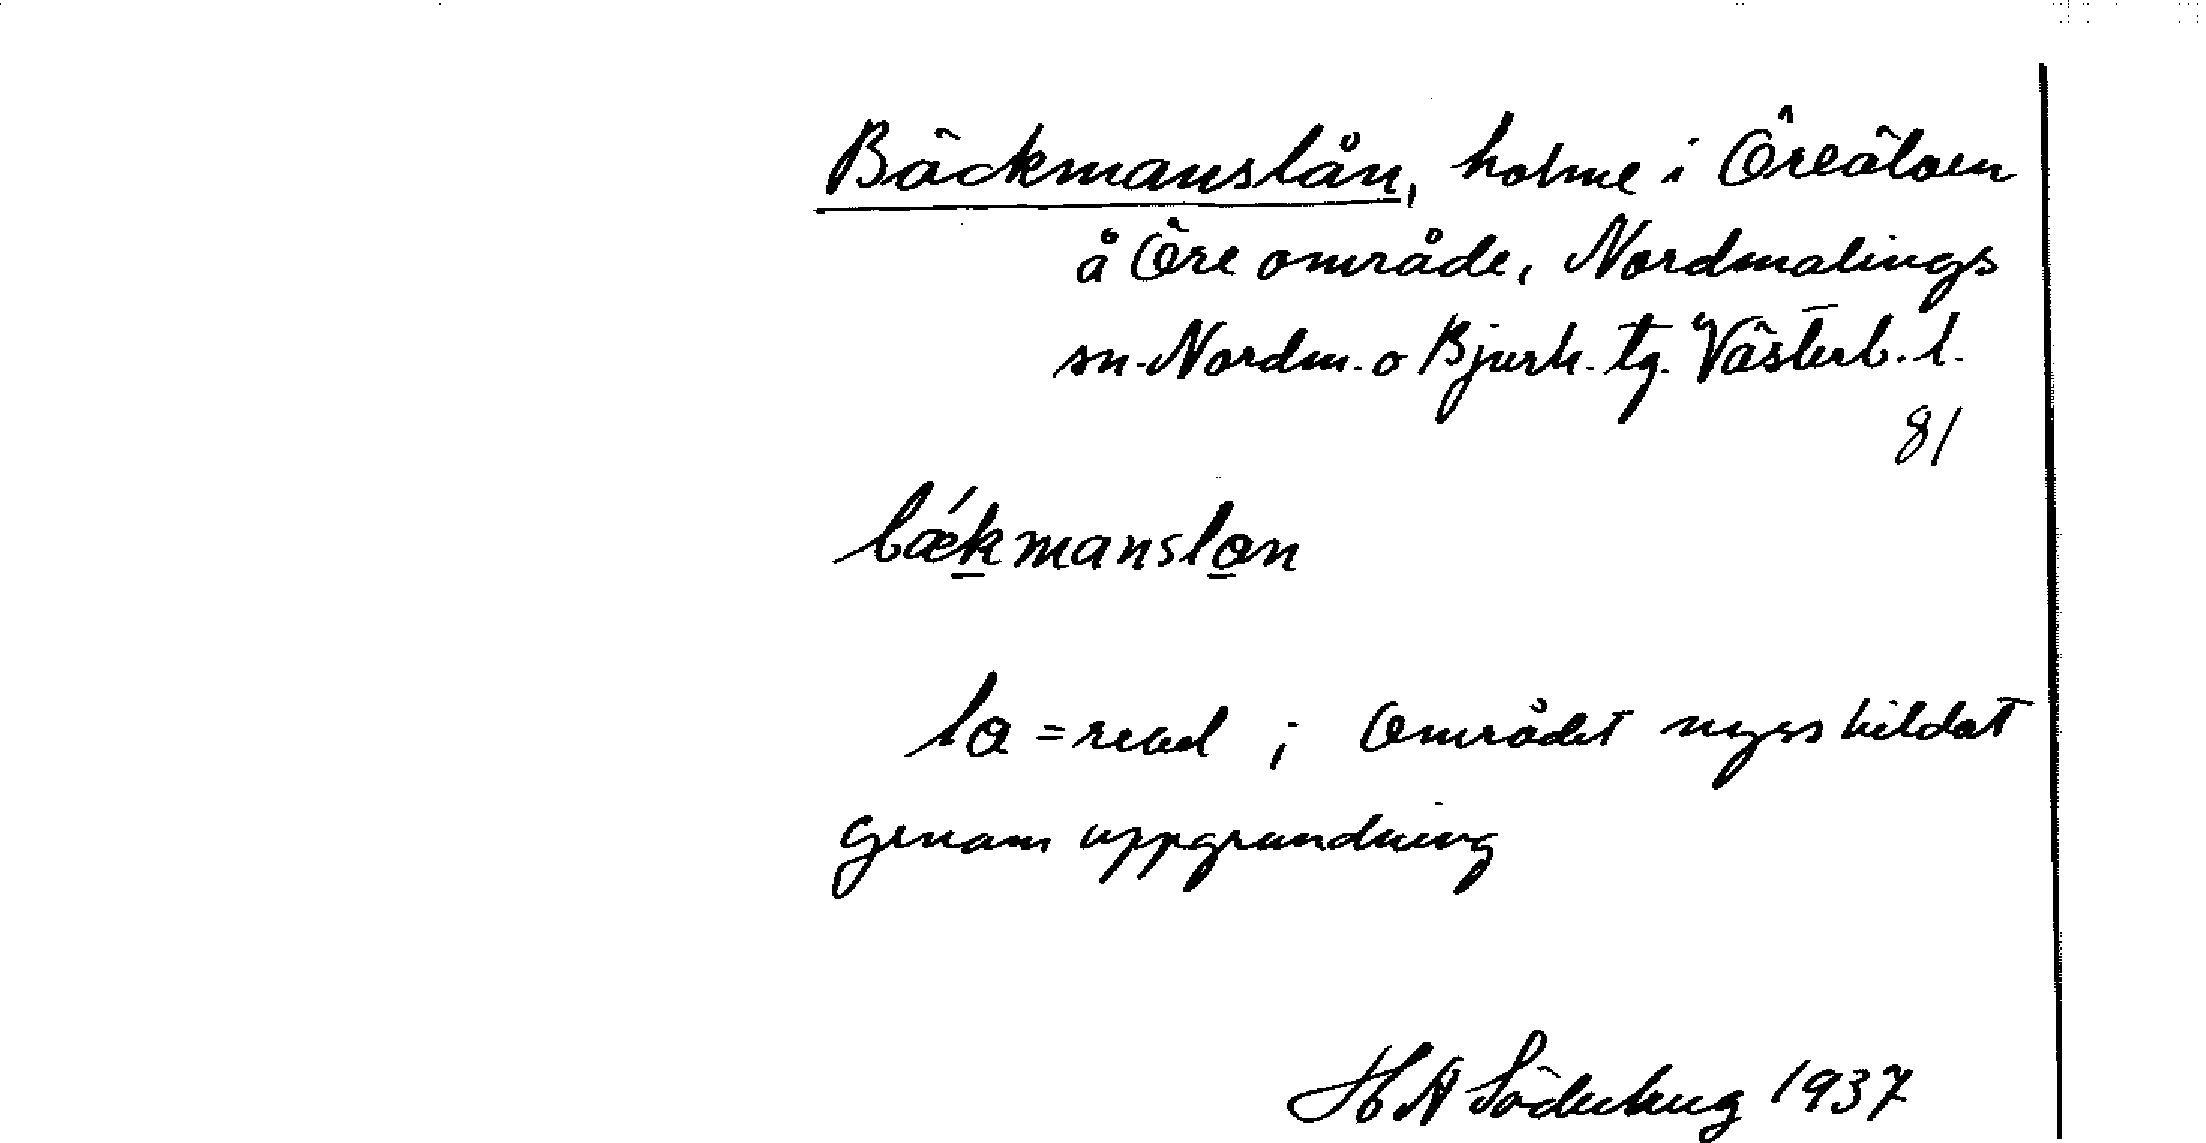 Bäckmanslån, holme i Öreälven
å Öre område, Nordmalings
sn. Nordm. o Bjurh. tg. Västerb. l.
81
bǽkmanslon
lo = revel ; området nyss bildat
genom uppgrundning
H A Söderberg 1937